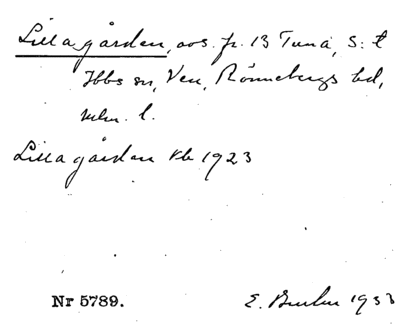 Lilla gården, avs. fr. 13 Tuna, S:t
Ibbs sn, Ven, Rönnebergs hd,
Mlm. l.
Lilla gården kb 1923
Nr 5789. E. 1933